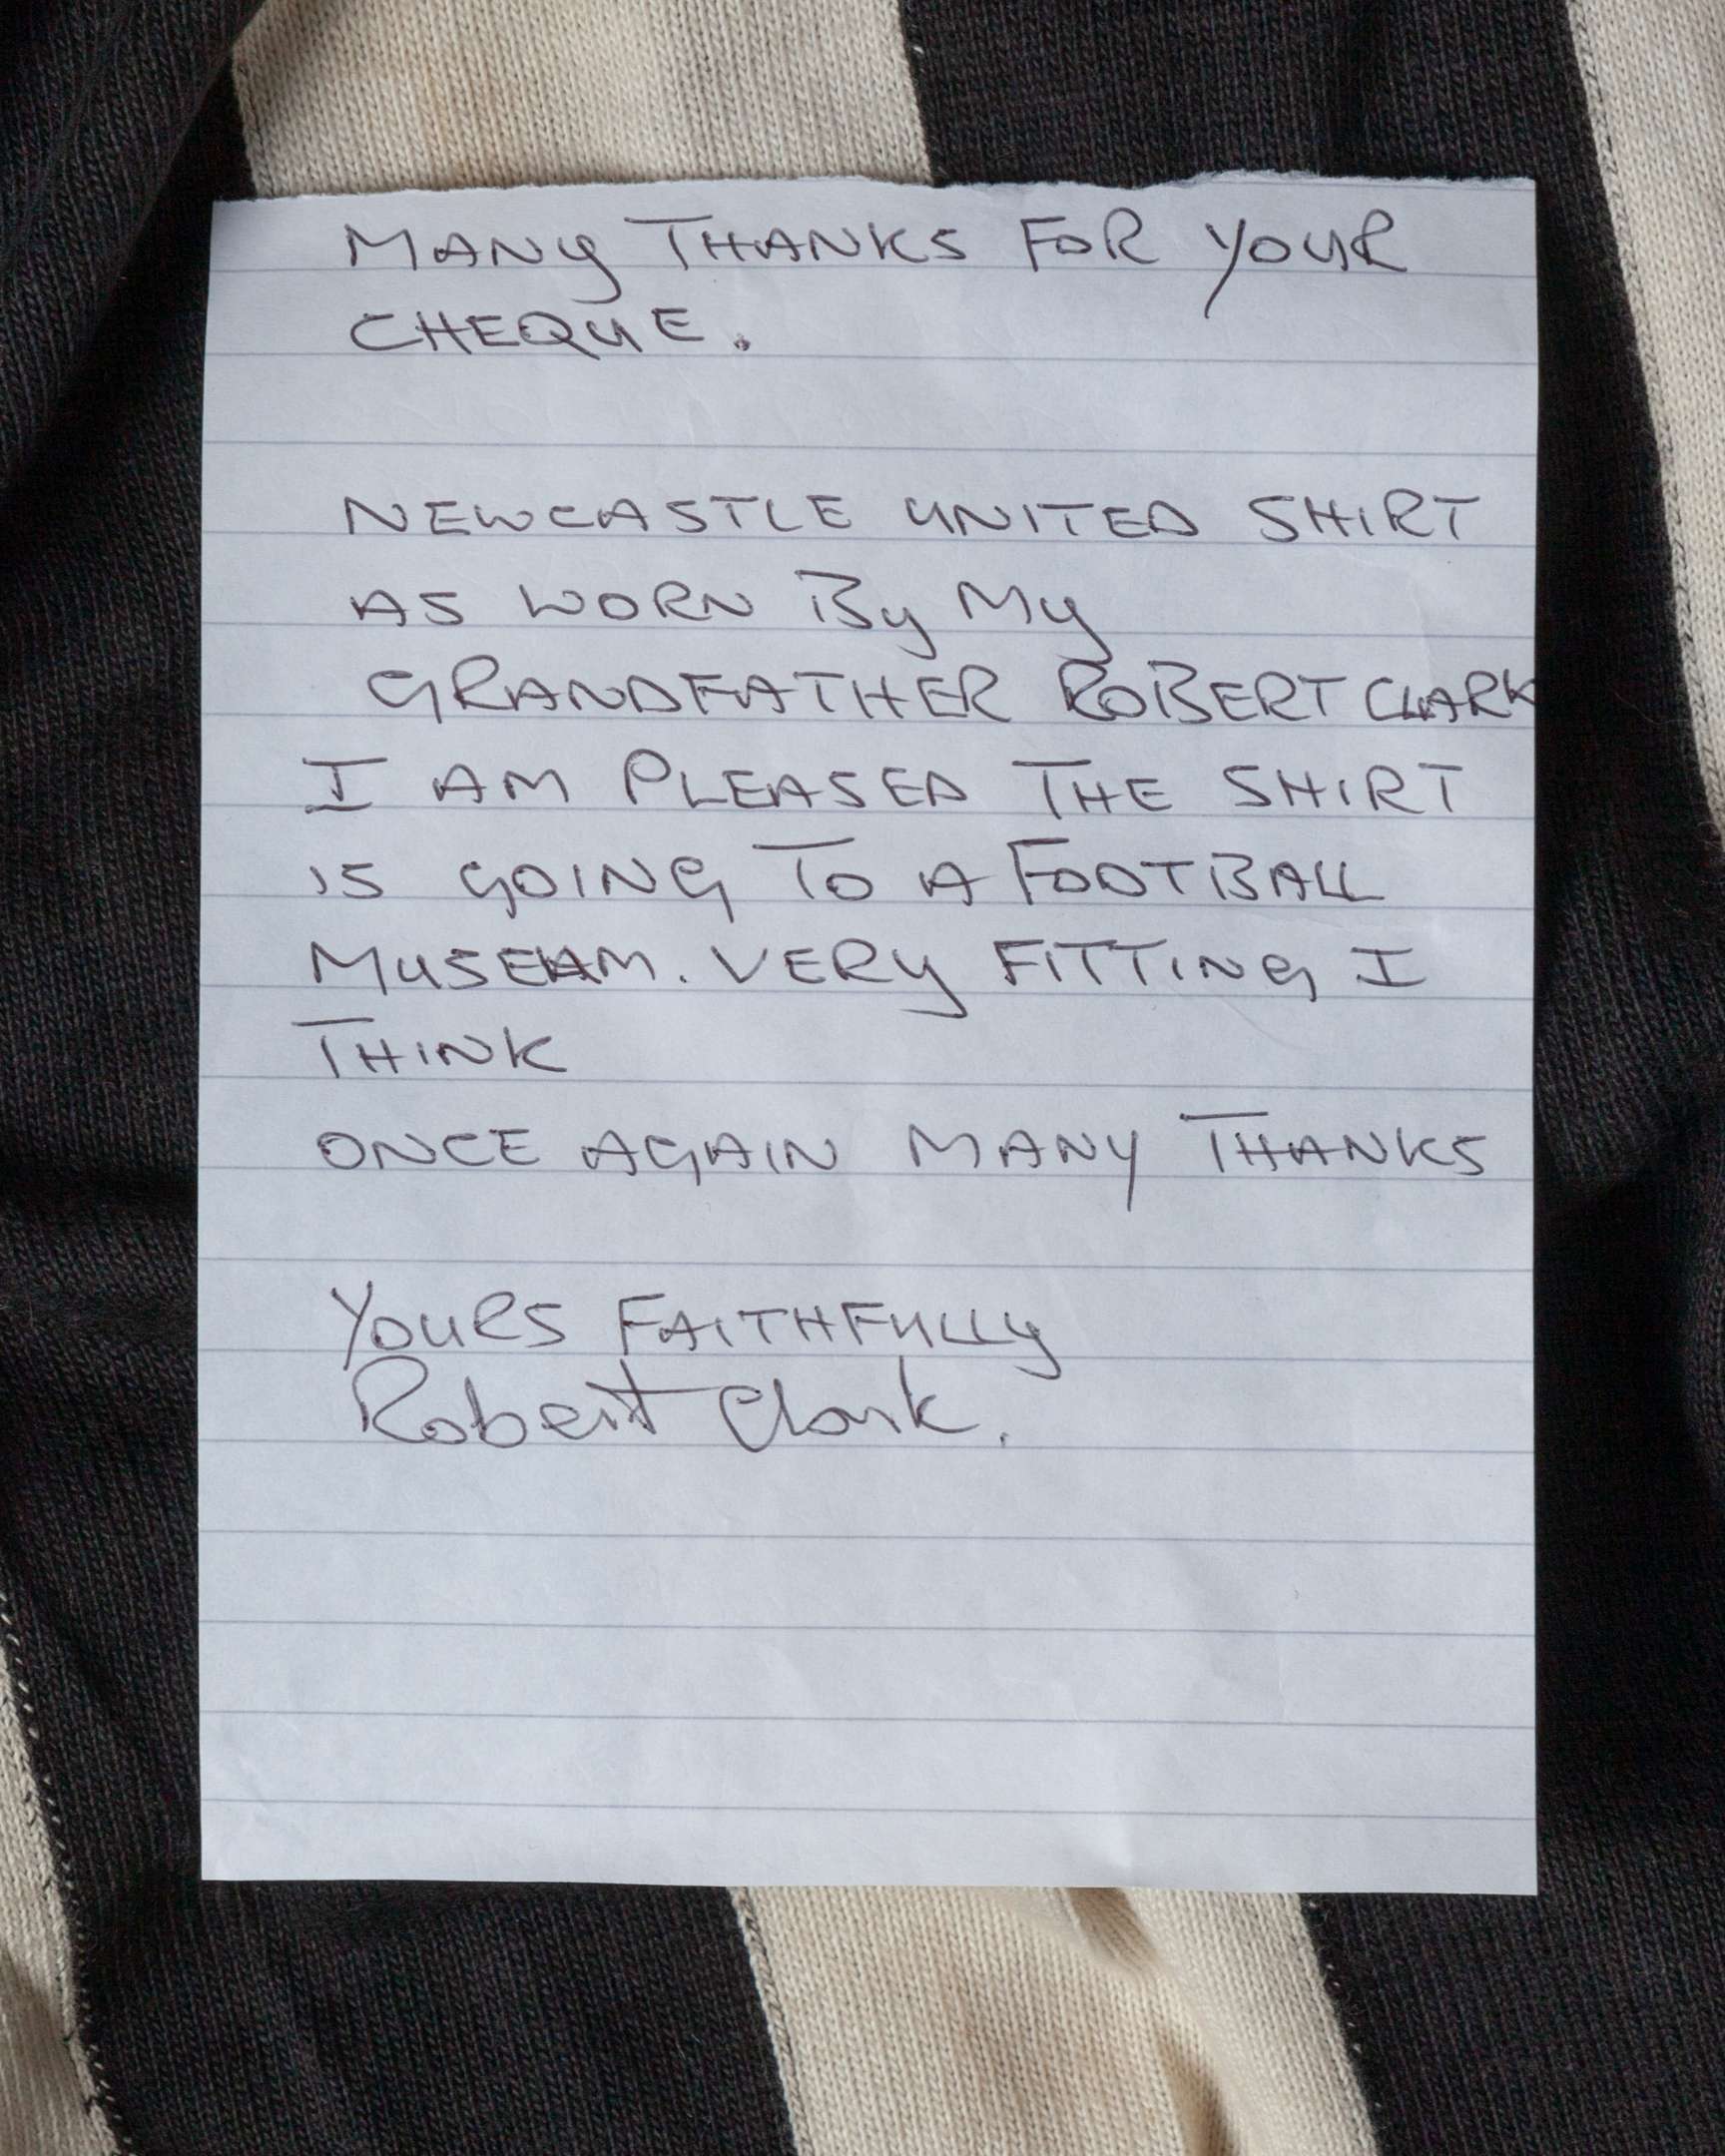 MANY THANKS FOR YOUR
CHEQUE.
NEWCASTLE UNITED SHIRT
AS WORN BY MY
GRANDFATHER ROBERT CLARK
I AM PLEASED THE SHIRT
IS GOING TO A FOOTBALL
MUSEUM. VERY FITTING I
THINK
ONCE AGAIN MANY THANKS
YOURS FAITHFULLY
Robert Clark.